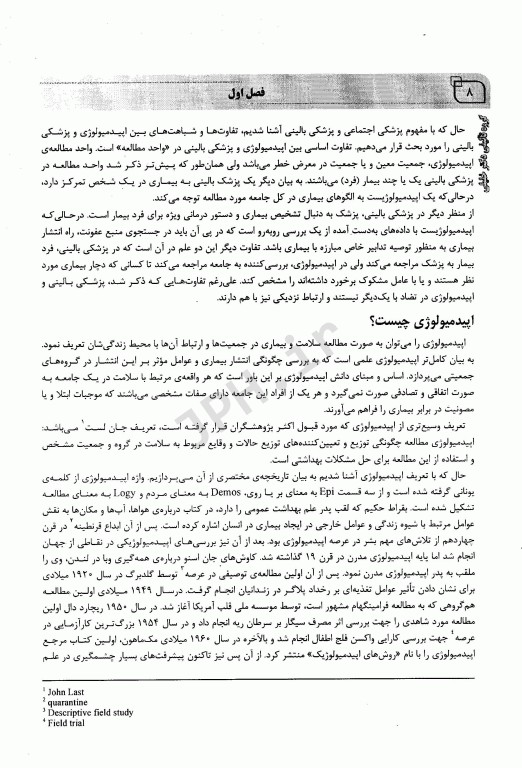 ۸
فصل اول
گروه تالیفی دکتر خلیلی
حال که با مفهوم پزشکی اجتماعی و پزشکی بالینی آشنا شدیم، تفاوت‌ها و شباهت‌های بین اپیدمیولوژی و پزشکی
بالینی را مورد بحث قرار می‌دهیم. تفاوت اساسی بین اپیدمیولوژی و پزشکی بالینی در «واحد مطالعه» است. واحد مطالعه‌ی
اپیدمیولوژی، جمعیت معین و یا جمعیت در معرض خطر می‌باشد ولی همان‌طور که پیش‌تر ذکر شد واحد مطالعه در
پزشکی بالینی یک یا چند بیمار (فرد) می‌باشند. به بیان دیگر یک پزشک بالینی به بیماری در یک شخص تمرکز دارد،
درحالی‌که یک اپیدمیولوژیست به الگوهای بیماری در کل جامعه مورد مطالعه توجه می‌کند.
از منظر دیگر در پزشکی بالینی، پزشک به دنبال تشخیص بیماری و دستور درمانی ویژه برای فرد بیمار است. درحالی‌که
اپیدمیولوژیست با داده‌های به‌دست.آمده از یک بررسی روبه‌رو است که در پی آن باید در جستجوی منبع عفونت، راه انتشار
بیماری به منظور توصیه تدابیر خاص مبارزه با بیماری باشد. تفاوت دیگر این دو علم در آن است که در پزشکی بالینی، فرد
بیمار به پزشک مراجعه می‌کند ولی در اپیدمیولوژی، بررسی‌کننده به جامعه مراجعه می‌کند تا کسانی که دچار بیماری مورد
نظر هستند و یا با عامل مشکوک برخورد داشته‌اند را مشخص کند. علی‌رغم تفاوت‌هایی که ذکر شد، پزشکی بالینی و
اپیدمیولوژی در تضاد با یک‌دیگر نیستند و ارتباط نزدیکی نیز با هم دارند.
اپیدمیولوژی چیست؟
اپیدمیولوژی را می‌توان به صورت مطالعه سلامت و بیماری در جمعیت‌ها و ارتباط آن‌ها با محیط زندگی‌شان تعریف نمود.
به بیان کامل‌تر اپیدمیولوژی علمی است که به بررسی چگونگی انتشار بیماری و عوامل مؤثر بر این انتشار در گروه‌های
جمعیتی می‌پردازد. اساس و مبنای دانش اپیدمیولوژی بر این باور است که هر واقعه‌ی مرتبط با سلامت در یک جامعه به
صورت اتفاقی و تصادفی صورت نمی‌گیرد و هر یک از افراد این جامعه دارای صفات مشخصی می‌باشند که موجبات ابتلا و یا
مصونیت در برابر بیماری را فراهم می‌آورند.
تعریف وسیع‌تری از اپیدمیولوژی که مورد قبول اکثر پژوهشگران قرار گرفته است، تعریف جان لست¹ می‌باشد:
اپیدمیولوژی مطالعه چگونگی توزیع و تعیین‌کننده‌های توزیع حالات و وقایع مربوط به سلامت در گروه و جمعیت مشخص
و استفاده از این مطالعه برای حل مشکلات بهداشتی است.
حال که با تعریف اپیدمیولوژی آشنا شدیم به بیان تاریخچه‌ی مختصری از آن می‌پردازیم. واژه اپیدمیولوژی از کلمه‌ی
یونانی گرفته شده است و از سه قسمت Epi به معنای بر یا روی، Demos به معنای مردم و Logy به معنای مطالعه
تشکیل شده است. بقراط حکیم که لقب پدر علم بهداشت عمومی را دارد، در کتاب درباره‌ی هواها، آب‌ها و مکان‌ها به نقش
عوامل مرتبط با شیوه زندگی و عوامل خارجی در ایجاد بیماری در انسان اشاره کرده است. پس از آن ابداع قرنطینه² در قرن
چهاردهم از تلاش‌های مهم بشر در عرصه اپیدمیولوژی بود. بعد از آن نیز بررسی‌های اپیدمیولوژیکی در نقاطی از جهان
انجام شد اما پایه اپیدمیولوژی مدرن در قرن ۱۹ گذاشته شد. کاوش‌های جان اسنو درباره‌ی همه‌گیری وبا در لندن، وی را
ملقب به پدر اپیدمیولوژی مدرن نمود. پس از آن اولین مطالعه‌ی توصیفی در عرصه³ توسط گلدبرگ در سال ۱۹۲۰ میلادی
برای نشان دادن تأثیر عوامل تغذیه‌ای بر رخداد پلاگر در زندانیان انجام گرفت. درسال ۱۹۴۹ میلادی اولین مطالعه
هم‌گروهی که به مطالعه فرامینگهام مشهور است، توسط موسسه ملی قلب آمریکا آغاز شد. در سال ۱۹۵۰ ریچارد دال اولین
مطالعه مورد شاهدی را جهت بررسی اثر مصرف سیگار بر سرطان ریه انجام داد و در سال ۱۹۵۴ بزرگ‌ترین کارآزمایی در
عرصه⁴ جهت بررسی کارایی واکسن فلج اطفال انجام شد و بالاخره در سال ۱۹۶۰ میلادی مک‌ماهون، اولین کتاب مرجع
اپیدمیولوژی را با نام «روش‌های اپیدمیولوژیک» منتشر کرد. از آن پس نیز تاکنون پیشرفت‌های بسیار چشمگیری در علم
¹ John Last
² quarantine
³ Descriptive field study
⁴ Field trial